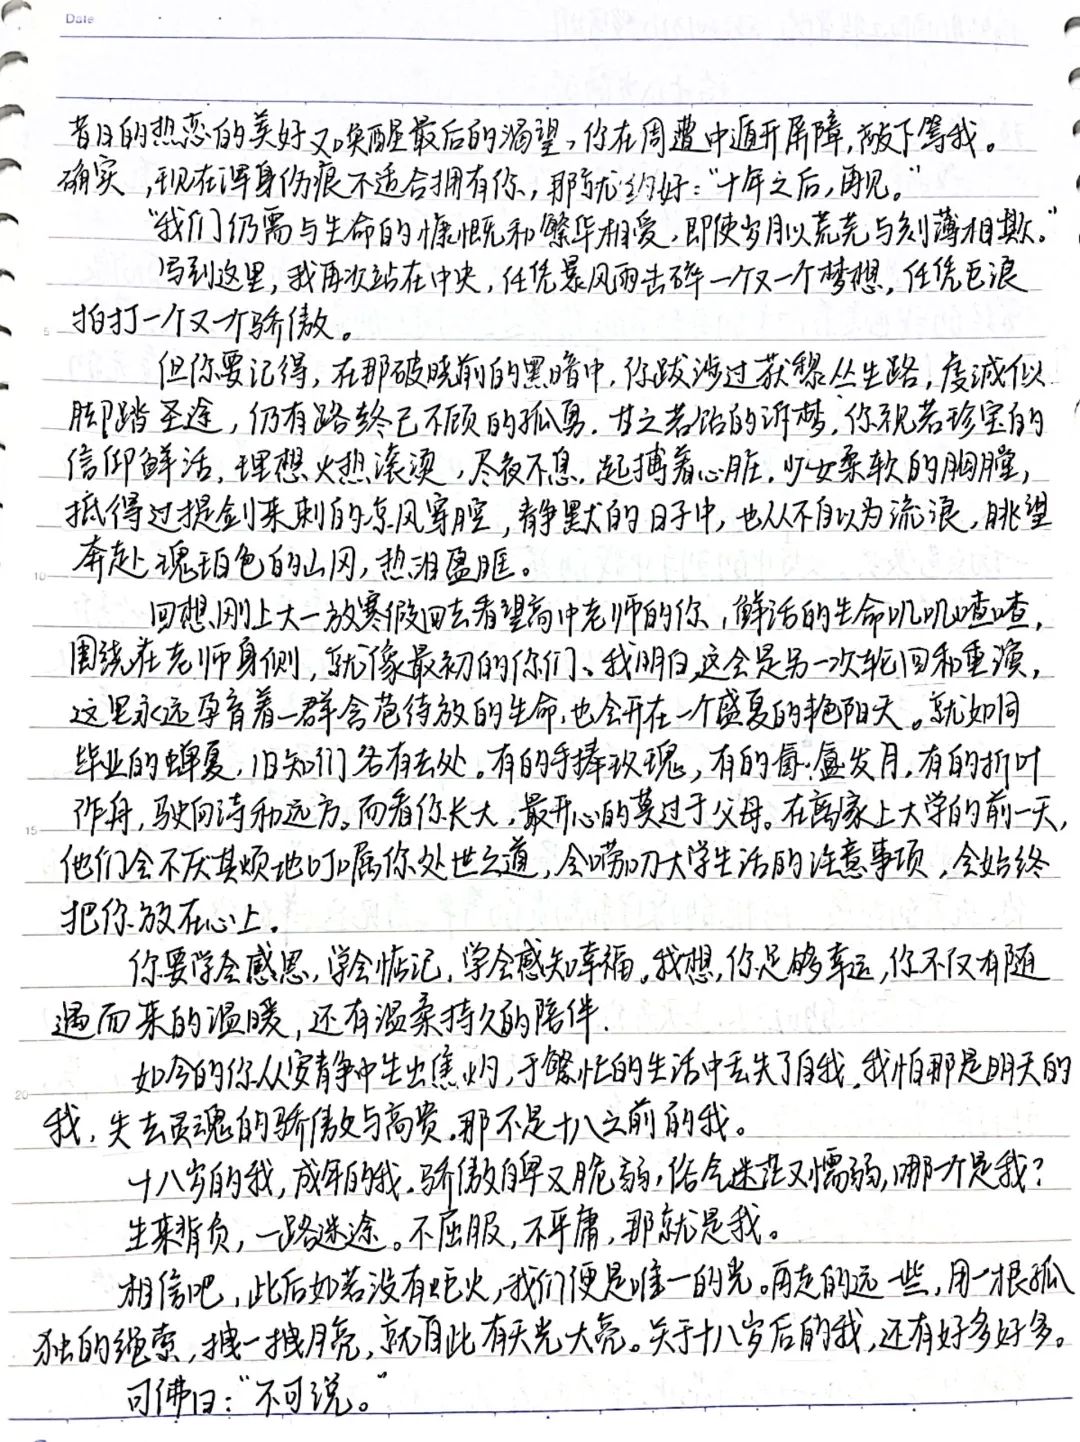 Date
昔日的热恋的美好又唤醒最后的渴望，你在周遭中遁开屏障，敞下等我。
确实，现在浑身伤痕不适合拥有你，那就约好：“十年之后，再见。”
“我们仍需与生命的慷慨和繁华相爱，即使岁月以荒芜与刻薄相欺。”
写到这里，我再次站在中央，任凭暴风雨击碎一个又一个梦想，任凭巨浪
拍打一个又一个骄傲。
但你要记得，在那破晓前的黑暗中，你跋涉过荻黎丛生路，虔诚似
脚踏圣途，仍有路终己不顾的孤勇，甘之若饴的诉梦，你视若珍宝的
信仰鲜活，理想火热滚烫，尽夜不息，起搏着心脏。少女柔软的胸膛，
抵得过提剑来刺的凉风穿膛，静默的日子中，也从不自以为流浪，眺望
奔赴瑰珀色的山冈，热泪盈眶。
回想刚上大一放寒假回去看望高中老师的你，鲜活的生命叽叽喳喳，
围绕在老师身侧，就像最初的你们、我明白，这会是另一次轮回和重演，
这里永远孕育着一群含苞待放的生命，也会开在一个盛夏的艳阳天。就如同
毕业的蝉夏，旧知们各有去处。有的手捧玫瑰，有的盈发月，有的折叶
作舟，驶向诗和远方。而看你长大，最开心的莫过于父母。在离家上大学的前一天，
他们会不厌其烦地叮嘱你处世之道，会唠叨大学生活的注意事项，会始终
把你放在心上。
你要学会感恩，学会惦记，学会感知幸福。我想，你足够幸运，你不仅有随
遇而来的温暖，还有温柔持久的陪伴.
如今的你从安静中生出焦灼，于繁忙的生活中丢失了自我。我怕那是明天的
我，失去灵魂的骄傲与高贵。那不是十八之前的我。
十八岁的我，成年的我。骄傲自卑又脆弱，俗气迷茫又懦弱，哪一个是我？
生来背负，一路迷途。不屈服，不平庸，那就是我。
相信吧，此后如若没有炬火，我们便是唯一的光。再走的远一些，用一根孤
独的绳索，拽一拽月亮，就自此有天光大亮。关于十八岁后的我，还有好多好多。
可佛曰：“不可说。”
5
10
15
20